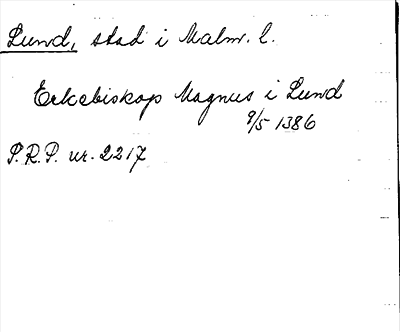 Lund, stad i Malm. l.
Erkebiskop Magnus i Lund
9/5 1386
P.R.P. nr. 2217